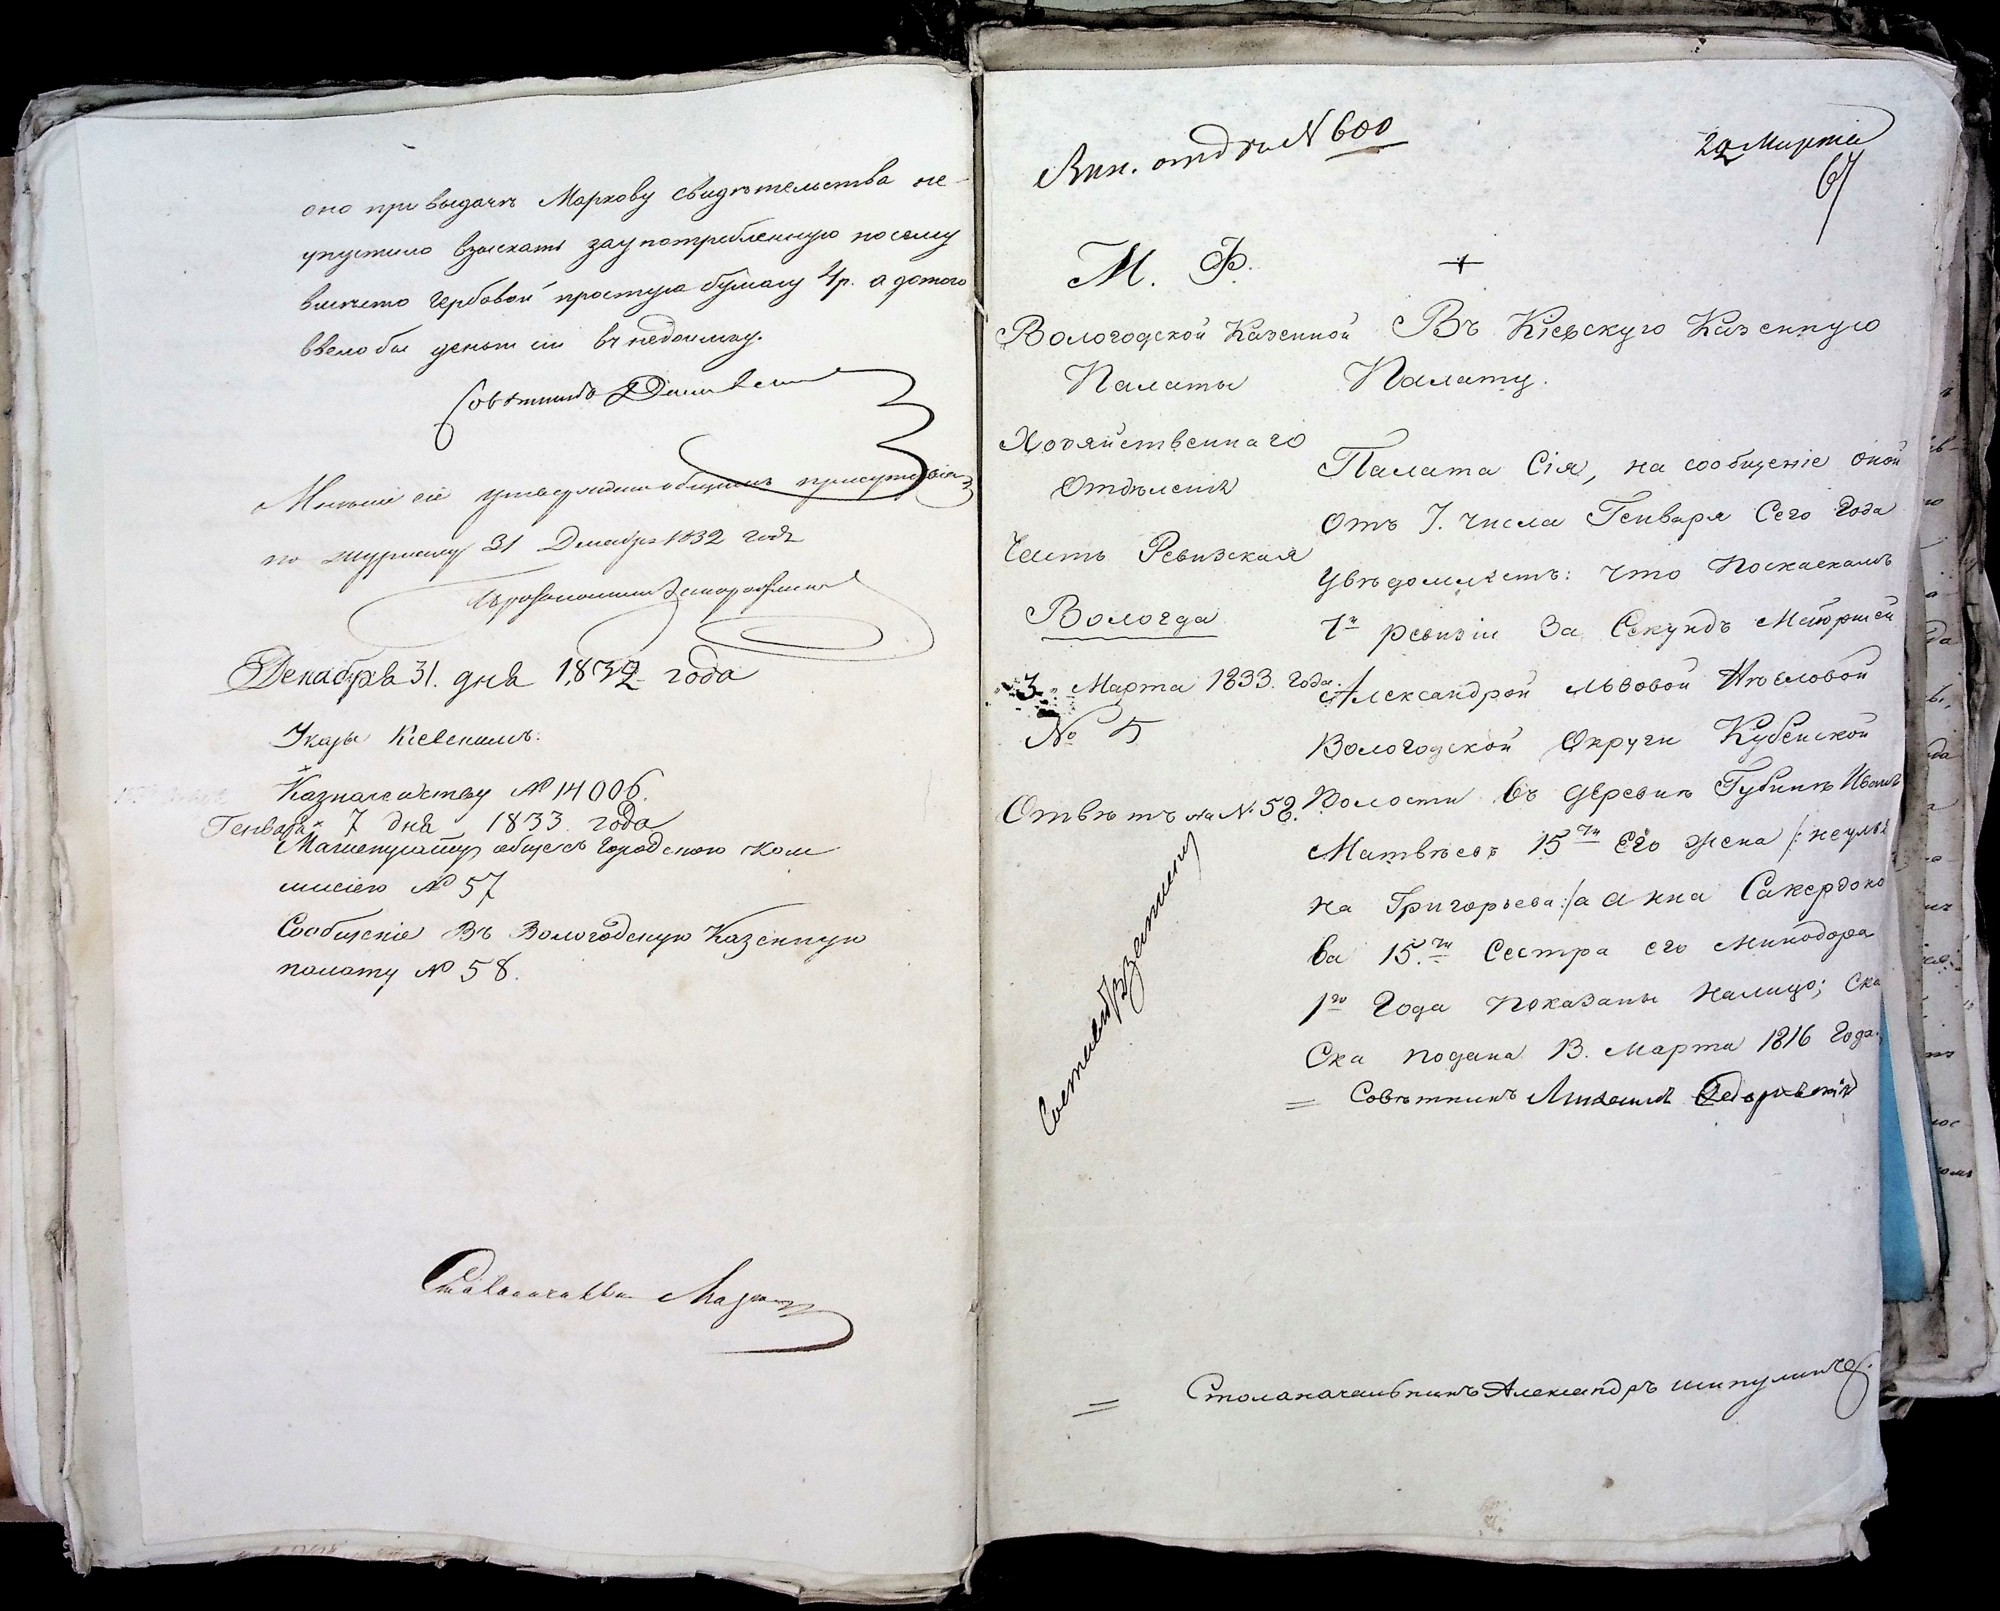 оно при выдачѣ Маркову свидѣтельства не-
упустило взыскать за употребленную посему
вмѣсто гербовой простую бумагу 4 р. а до того
ввело бы деньги сіи въ недоимку.
Совѣтникъ
Мнѣніе сіе утверждено общимъ присутствіемъ
по журналу 31 Декабря 1832 года
Декабря 31. дня 1832 года
Указы Кіевскимъ:
Казначейству № 14006.
Генваря 7 дня 1833. года
общесъ Городскою Ком
мисіею № 57
Сообщеніе Въ Вологодскую Казенную
палату № 58.
Вин. отдѣл N 600
22 Марта
67
М. Ф.
Вологодской Казенной
Палаты
Хозяйственнаго
Отдѣленія
Часть Ревизская
Вологда
3. Марта 1833. Года.
№ 5
Отвѣтъ на №. 58.
Въ Кіевскую Казенную
Палату.
Палата Сія, на сообщеніе оной
отъ 7. числа Генваря Сего Года
увѣдомляетъ: что по скаскамъ
7й ревизіи За Секундъ Маіоршей
Александрой Львовой
Вологодской Округи Кубенской
Волости въ деревнѣ Губинѣ Иванъ
Матвѣевъ 15ти Его жена /: Неумы
на Григорьева :/ а Анна Сакердоно
ва 15.ти Сестра его Минодора
1го Года показаны налицо; Ска
ска подана 13. Марта 1816 Года.
Совѣтникъ
Столоначальникъ Александръ Шипулинъ